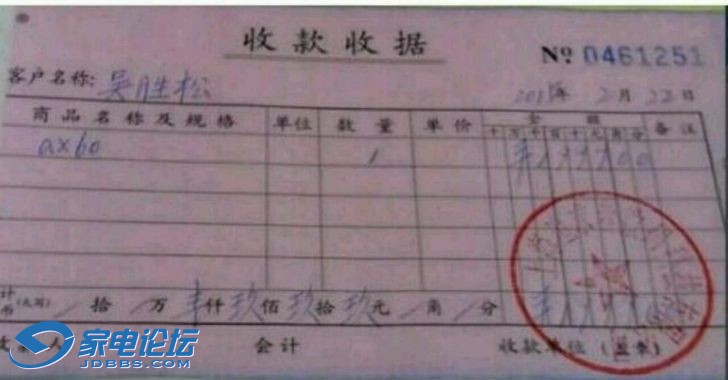 收款收据
Nº 0461251
客户名称: 吴胜松 2015年2月22日
商品名称及规格 单位 数量 单价 金额 备注
十万千百十元角分
ax60 1 ¥199900
拾 万 仟玖佰玖拾玖元 角 分
家电论坛
JDBBS.COM
收款人 会计 收款单位(盖章)